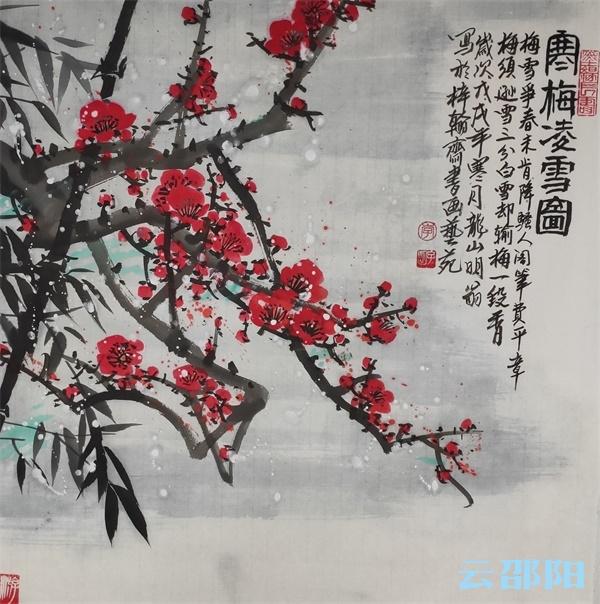 寒梅凌雪图
梅雪争春未肯降骚人阁笔费平章
梅须逊雪三分白雪却输梅一段香
岁次戊戌年寒月龙山明翁
写於梓翰斋书画艺苑
云邵阳